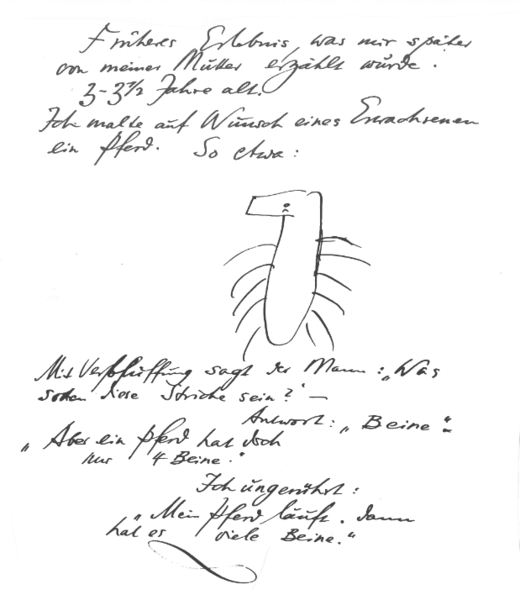 Früheres Erlebnis, was mir später
von meiner Mutter erzählt wurde.
3-3½ Jahre alt.
Ich malte auf Wunsch eines Erwachsenen
ein Pferd. So etwa:
Mit Verblüffung sagt der Mann: „Was
sollen diese Striche sein?" —
Antwort: „Beine" —
„Aber ein Pferd hat doch
nur 4 Beine."
Ich ungerührt:
„Mein Pferd läuft. Dann
hat es viele Beine."